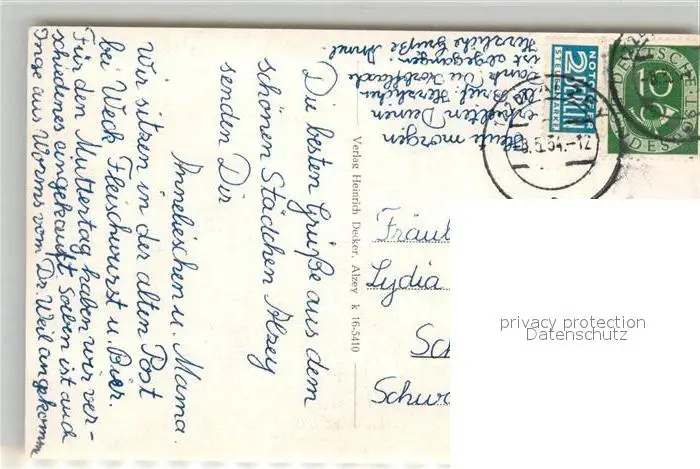 Die besten Grüße aus dem
schönen Städchen Alzey
senden Dir
Annelieschen u. Mama.
Wir sitzen in der alten Post
bei Weck, Fleischwurst u. Bier.
Für den Muttertag haben wir ver-
schiedenes eingekauft. Soeben ist auch
Inge aus Worms vom Dr. Weil angekomm
Heute morgen
erhielten Deinen
lb. Brief. Herzlichen
Dank! Die
ist abgegangen.
Herzliche Grüße Annel.
Verlag Heinrich Decker, Alzey k 16-5410
NOTOPFER
2 BERLIN
STEUERMARKE
DEUTSCHE
10
BUNDES
8.5.54.-12
Fräul
Lydia
Sc
Schw
privacy protection
Datenschutz